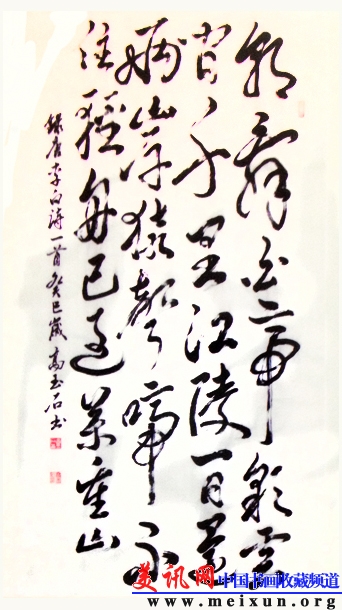 朝辭白帝彩雲
間千里江陵一日還
兩岸猿聲啼不
住輕舟已過萬重山
錄唐李白詩一首癸巳歲高玉石书
美讯网 中国书画收藏频道
www.meixun.org